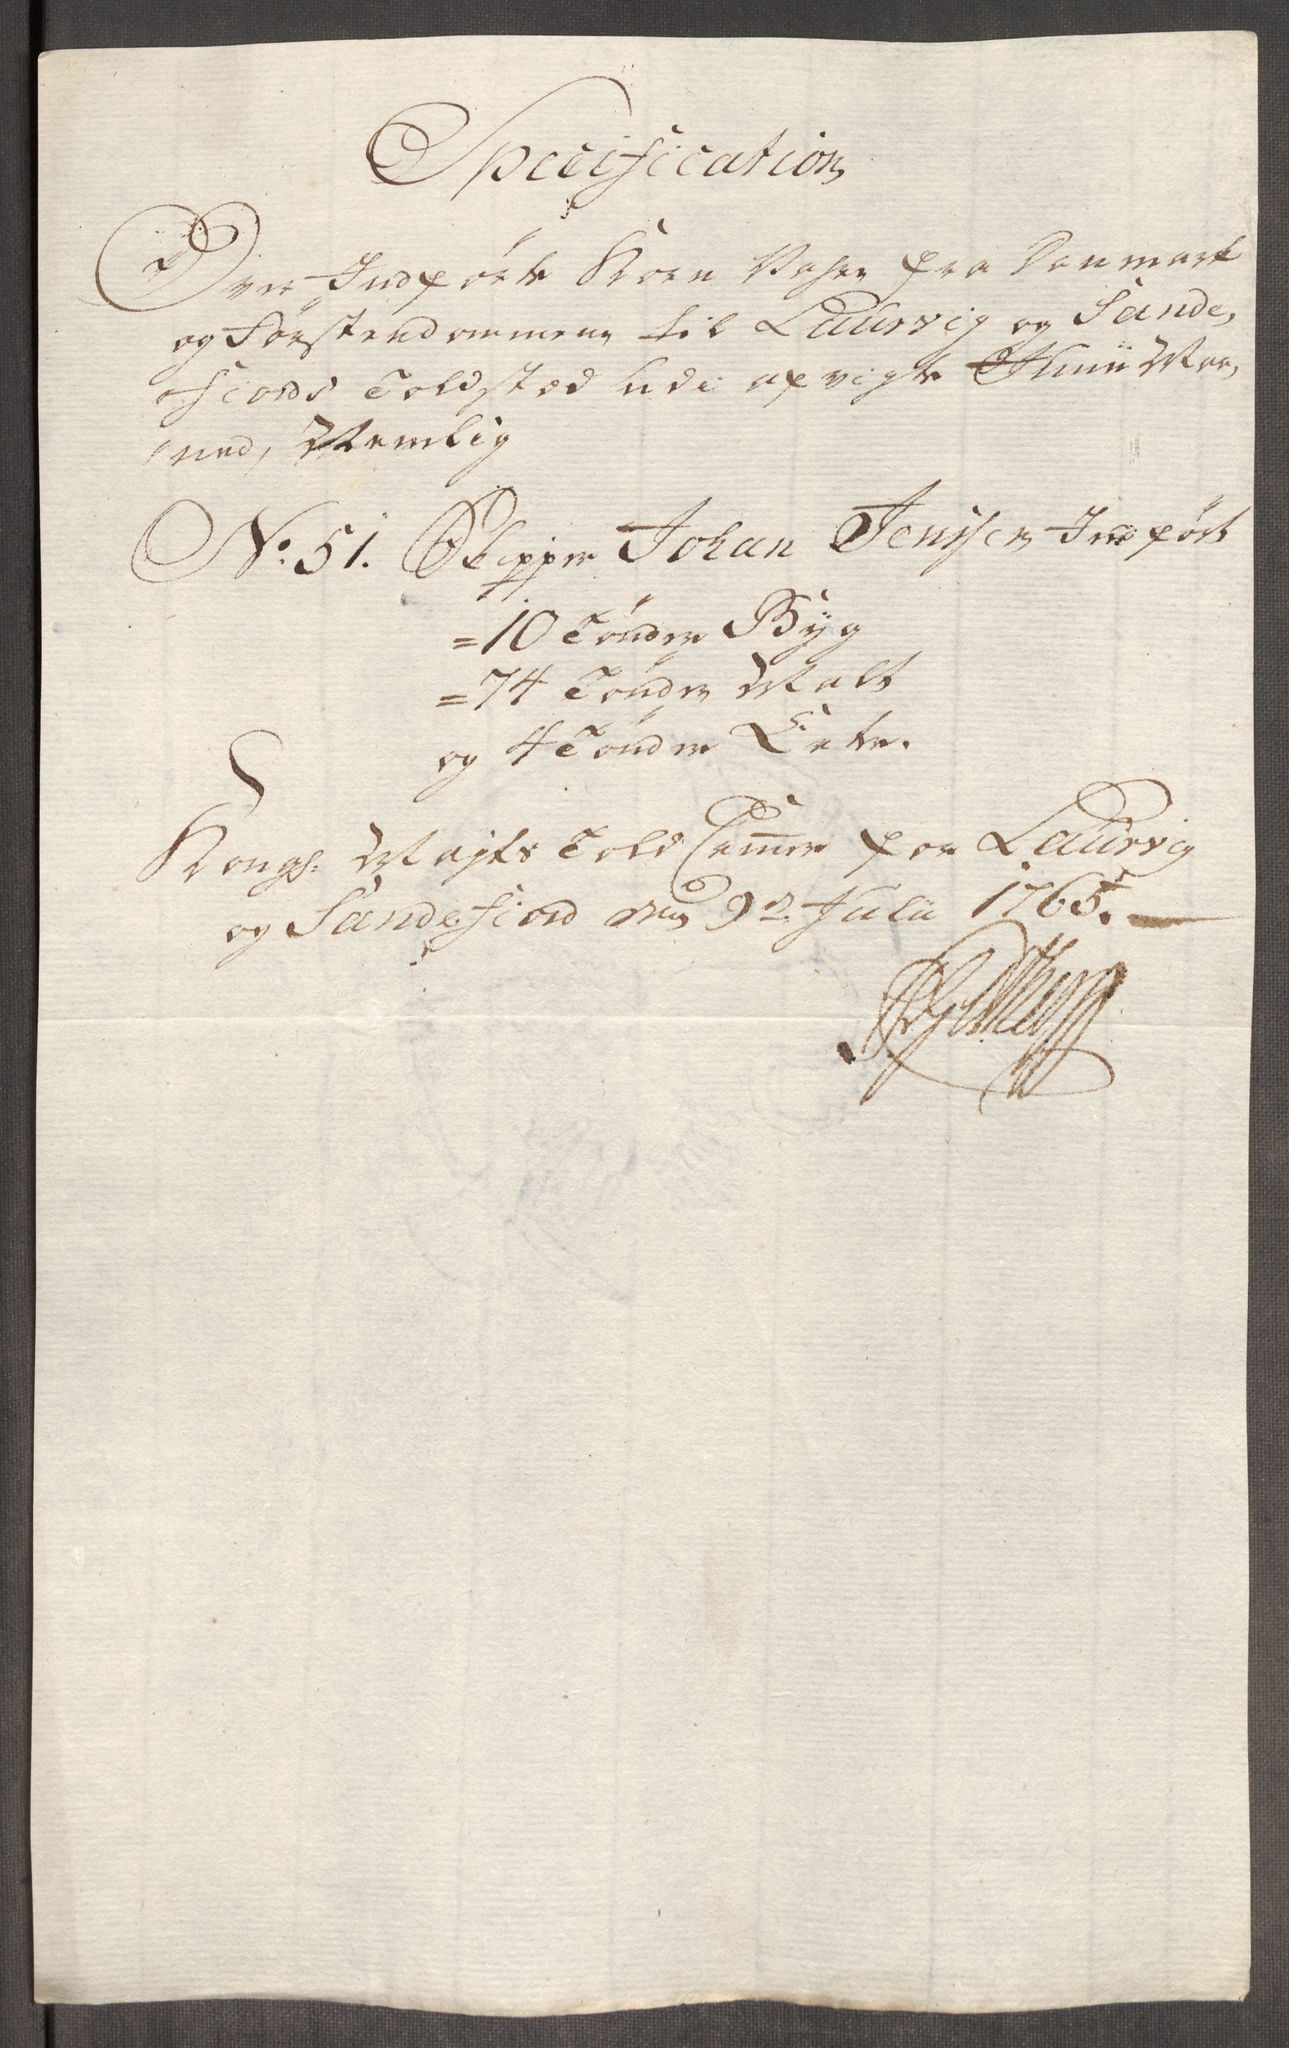 Specification
Over Indførte Korn Vahre fra Danmark
og Førstendommene til Laurvig og Sande,
fiords Toldsted udi afvigte Junii Maa,
ned, Nemlig
No: 51. Skipper Johan Jenssen Indført
= 10 Tönder Byg
= 74 Tönder Malt
og 4 Tönder Erter.
Kongl: Mayts Told Cammer for Laurvig
og Sandefiord den Julii 1765.